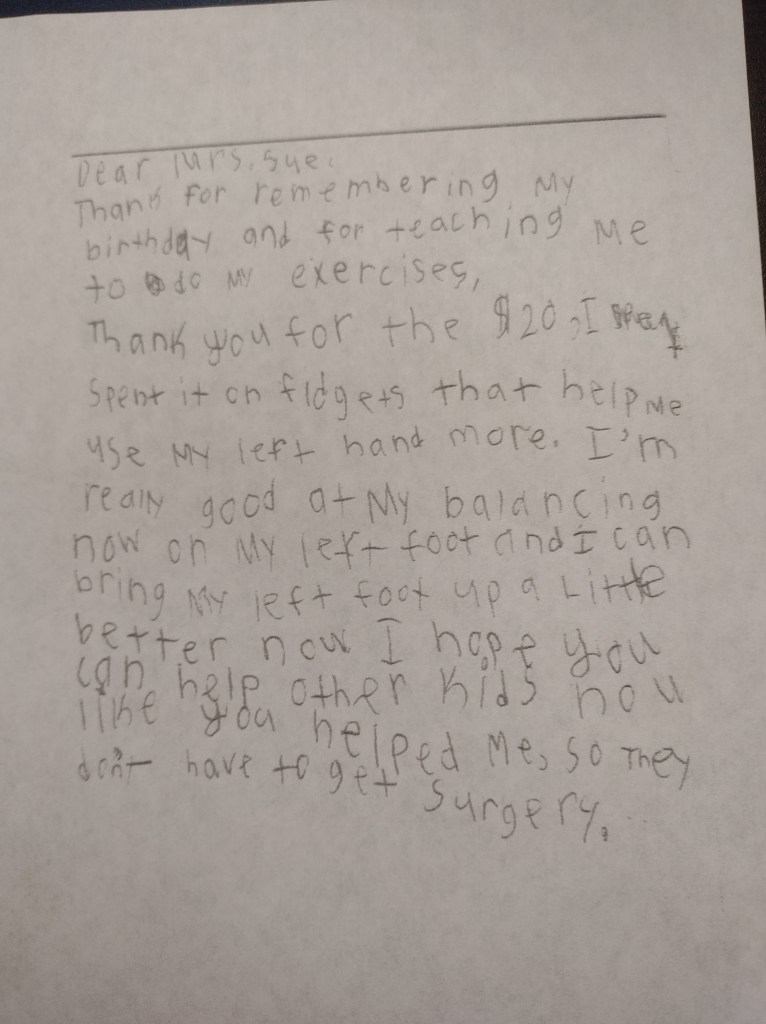 Dear Mrs. Sue.
Thank for remembering My
birthday and for teaching Me
to do My exercises,
Thank you for the $20, I
Spent it on fidgets that help Me
use My left hand more. I'm
realy good at My balancing
now on My left foot and I can
bring My left foot up a Little
better now I hope you
can help other kids nou
like you helped Me, so They
don't have to get surgery.